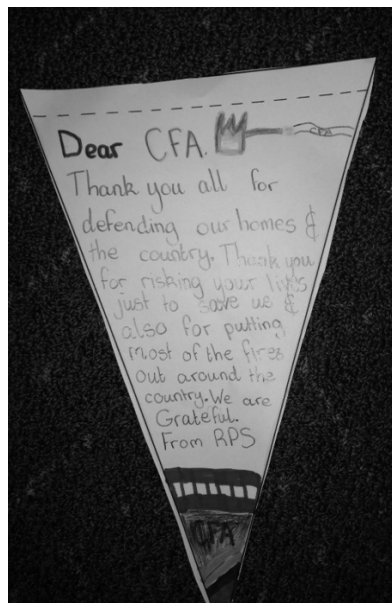 Dear CFA.
CFA
Thank you all for
defending our homes &
the country. Thank you
for risking your lives
just to save us &
also for putting
most of the fires
out around the
country. We are
Grateful.
From RPS
CFA